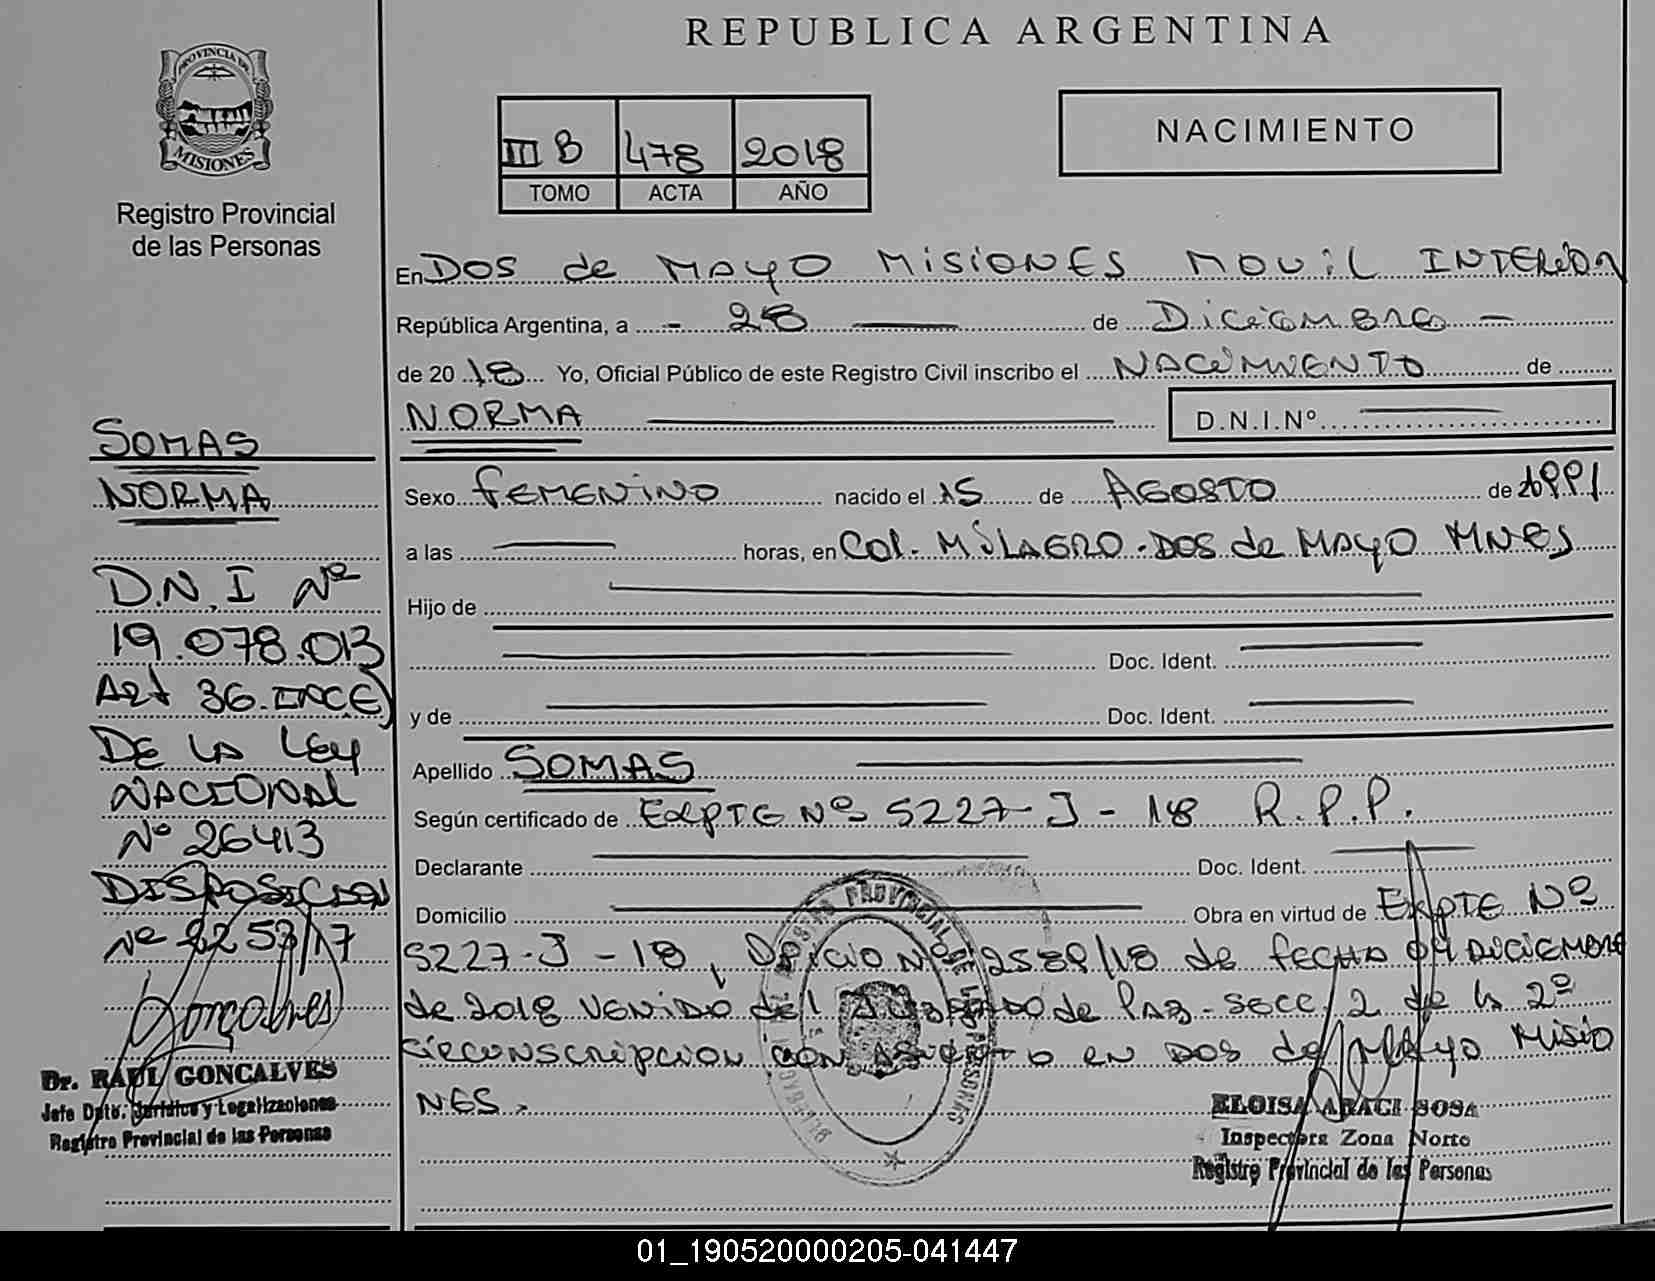 REPUBLICA ARGENTINA
PROVINCIA DE
MISIONES
Registro Provincial
de las Personas
III B 478 2018
TOMO ACTA AÑO
NACIMIENTO
En DOS de MAYO MISIONES MOVIL INTERIOR
República Argentina, a - 28 de Diciembre -
de 20 18 Yo, Oficial Público de este Registro Civil inscribo el NACIMIENTO de
NORMA D.N.I.Nº
Sexo FEMENINO nacido el 15 de AGOSTO de 1991
a las horas, en Col. MILAGRO. DOS de MAYO MNES
Hijo de
Doc. Ident.
y de Doc. Ident.
Apellido SOMAS
Según certificado de EXPTE Nº 5227-J-18 R.P.P.
Declarante Doc. Ident.
Domicilio Obra en virtud de EXPTE Nº
5227-J-18, OFICIO Nº 2589/18 de FECHA 04 DICIEMBRE
de 2018 VENIDO del JUZGADO de PAZ-SECC. 2 de la 2º
CIRCUNSCRIPCION CON ASIENTO EN DOS de MAYO MISIO
NES.
SOMAS
NORMA
D.N.I Nº
19.078.013
Art 36. INC E)
DE LA LEY
NACIONAL
Nº 26413
DISPOSICION
Nº 2253/17
Goncalves
Dr. RAUL GONCALVES
Jefe Dpto. Jurídico y Legalizaciones
Registro Provincial de las Personas
REGISTRO PROVINCIAL DE LAS PERSONAS
ELOISA ARACI SOSA
Inspectora Zona Norte
Registro Provincial de las Personas
01_190520000205-041447